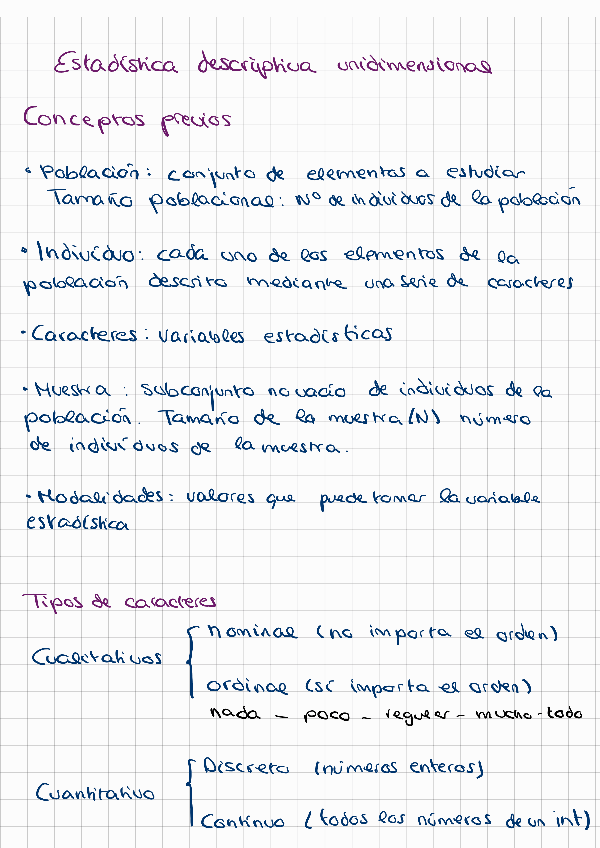 Estadística descriptiva unidimensional
Conceptos previos
• Población: conjunto de elementos a estudiar
Tamaño poblacional: Nº de individuos de la población
• Individuo: cada uno de los elementos de la
población descrito mediante una serie de caracteres
• Caracteres: variables estadísticas
• Muestra: subconjunto no vacío de individuos de la
población. Tamaño de la muestra (N) número
de individuos de la muestra.
• Modalidades: valores que puede tomar la variable
estadística
Tipos de caracteres
Cualitativos
Nominal (no importa el orden)
ordinal (sí importa el orden)
nada - poco - regular - mucho - todo
Cuantitativo
Discreto (números enteros)
Continuo (todos los números de un int)